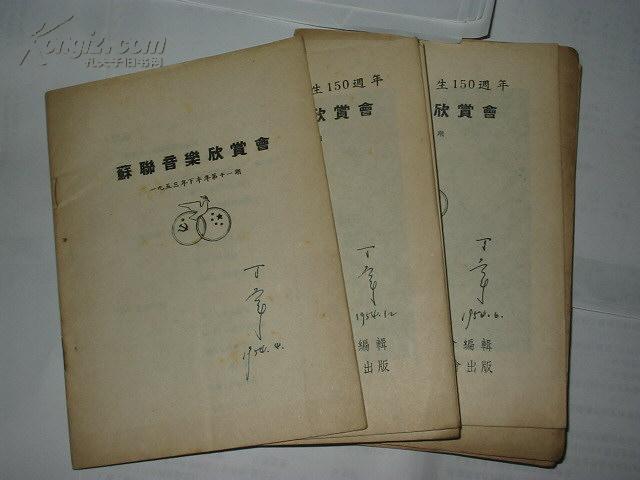 Kongfz.com
九天千旧书网
蘇聯音樂欣賞會
一九五三年下半年第十一期
1954.4.
生150週年
欣賞會
1954.12
編輯
出版
生150週年
欣賞會
期
1954.6.
會編輯
會出版